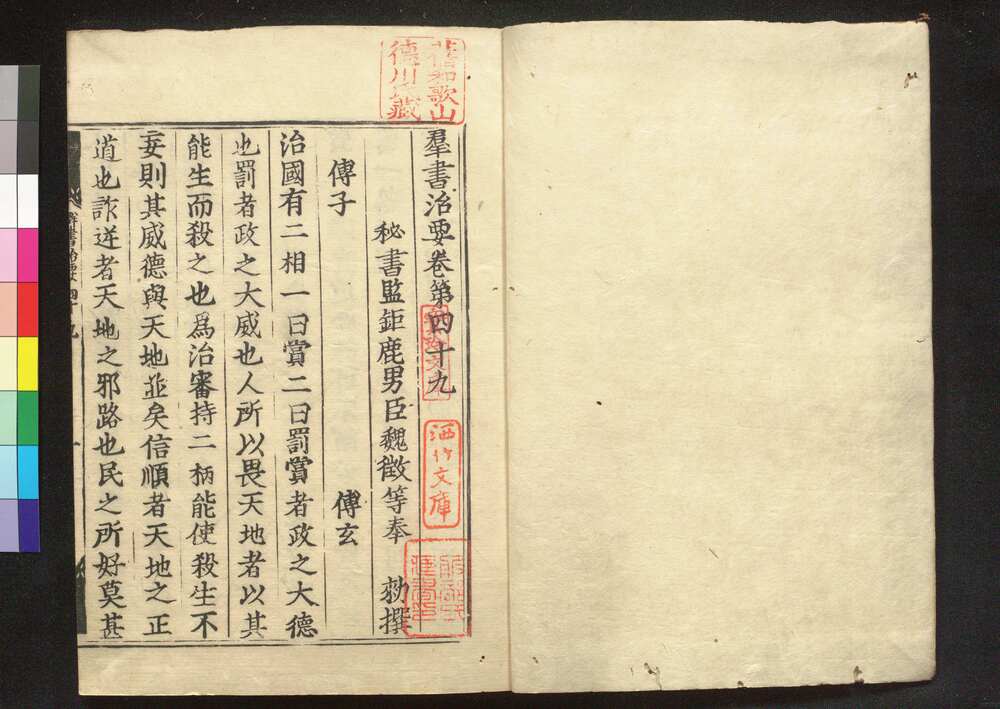 羣書治要卷第四十九
秘書監鉅鹿男臣魏徵等奉 勑撰
傅子 傅玄
治國有二相一曰賞二曰罰賞者政之大德
也罰者政之大威也人所以畏天地者以其
能生而殺之也爲治審持二柄能使殺生不
妄則其威德與天地並矣信順者天地之正
道也詐逆者天地之邪路也民之所好莫甚
群書治要 四十九
舊和歌山
德川氏藏
洒竹文庫